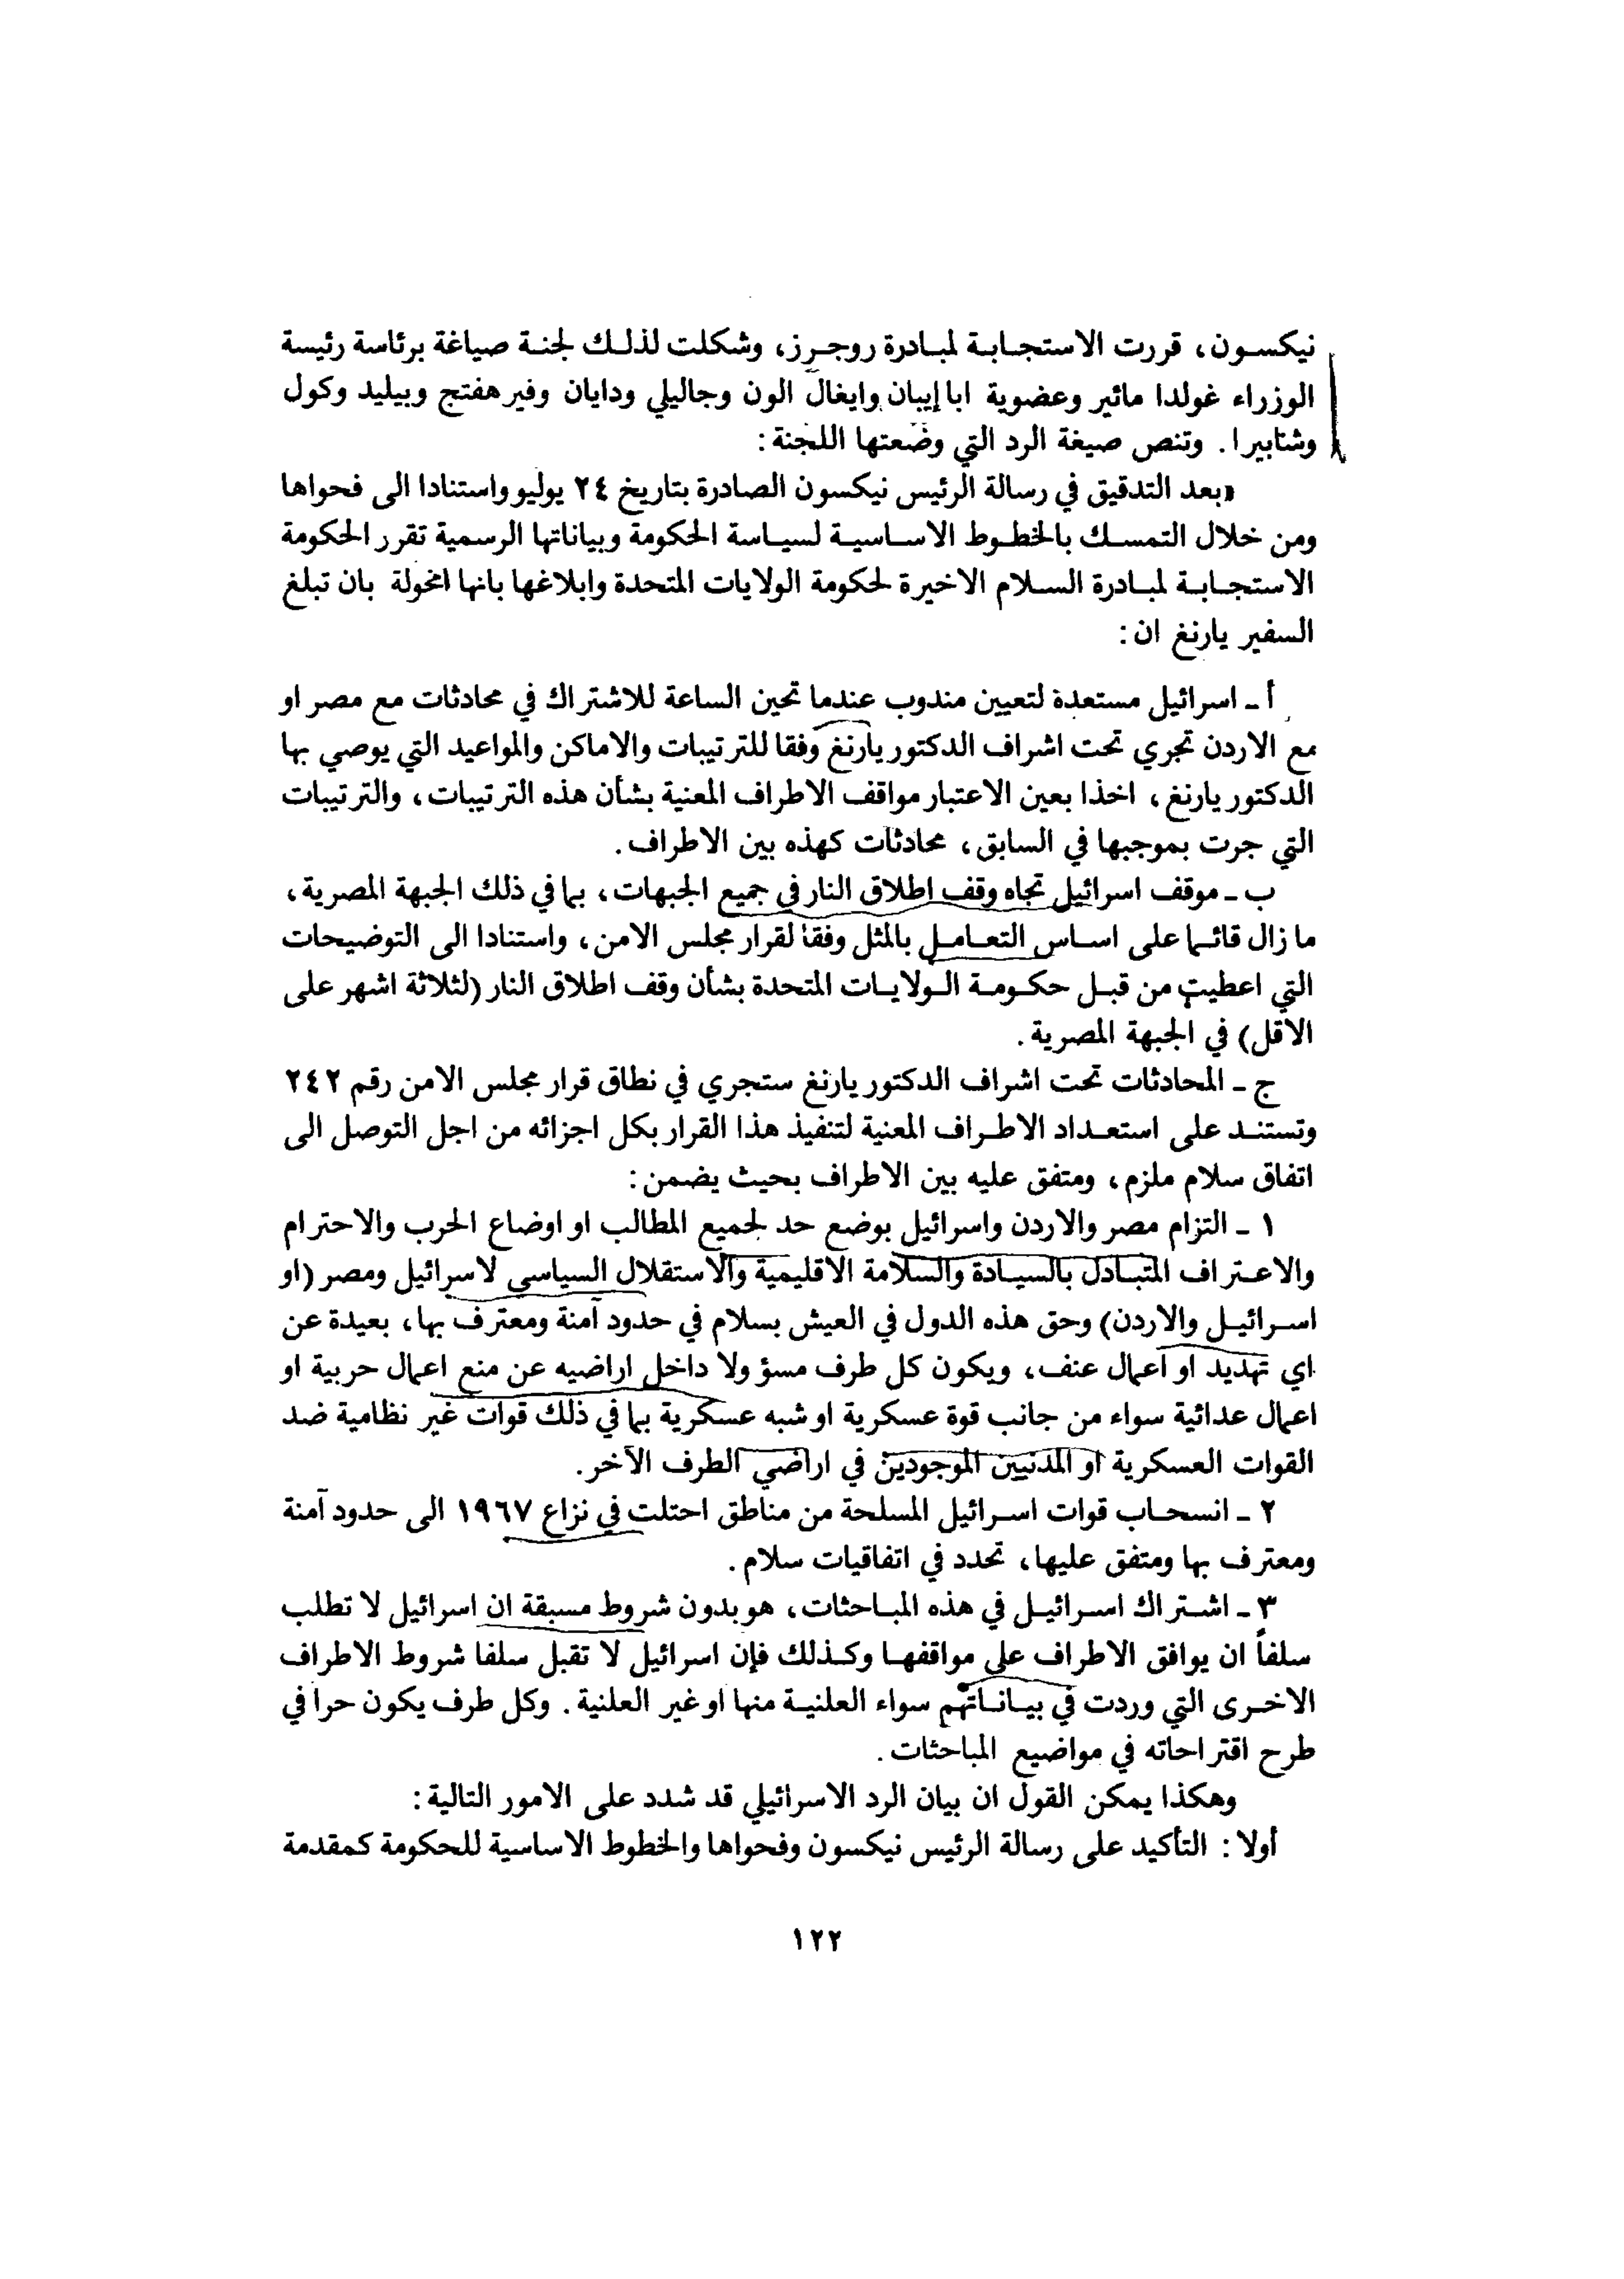 نيكسون، قررت الاستجابة لمبادرة روجرز، وشكلت لذلك لجنة صياغة برئاسة رئيسة
الوزراء غولدا مائير وعضوية ابا إيبان وايغال الون وجاليلي ودايان وفيرهفتج وبيليد وكول
وشابيرا. وتنص صيغة الرد التي وضعتها اللجنة:
«بعد التدقيق في رسالة الرئيس نيكسون الصادرة بتاريخ ٢٤ يوليو واستنادا الى فحواها
ومن خلال التمسك بالخطوط الاساسية لسياسة الحكومة وبياناتها الرسمية تقرر الحكومة
الاستجابة لمبادرة السلام الاخيرة لحكومة الولايات المتحدة وابلاغها بانها مخولة بان تبلغ
السفير يارنغ ان:
أ - اسرائيل مستعدة لتعيين مندوب عندما تحين الساعة للاشتراك في محادثات مع مصر او
مع الاردن تجري تحت اشراف الدكتور يارنغ وفقا للترتيبات والاماكن والمواعيد التي يوصي بها
الدكتور يارنغ، اخذا بعين الاعتبار مواقف الاطراف المعنية بشأن هذه الترتيبات، والترتيبات
التي جرت بموجبها في السابق، محادثات كهذه بين الاطراف.
ب - موقف اسرائيل تجاه وقف اطلاق النار في جميع الجبهات، بما في ذلك الجبهة المصرية،
ما زال قائما على اساس التعامل بالمثل وفقا لقرار مجلس الامن، واستنادا الى التوضيحات
التي اعطيت من قبل حكومة الولايات المتحدة بشأن وقف اطلاق النار (لثلاثة اشهر على
الاقل) في الجبهة المصرية.
ج - المحادثات تحت اشراف الدكتور يارنغ ستجري في نطاق قرار مجلس الامن رقم ٢٤٢
وتستند على استعداد الاطراف المعنية لتنفيذ هذا القرار بكل اجزائه من اجل التوصل الى
اتفاق سلام ملزم، ومتفق عليه بين الاطراف بحيث يضمن:
١ - التزام مصر والاردن واسرائيل بوضع حد لجميع المطالب او اوضاع الحرب والاحترام
والاعتراف المتبادل بالسيادة والسلامة الاقليمية والاستقلال السياسي لاسرائيل ومصر (او
اسرائيل والاردن) وحق هذه الدول في العيش بسلام في حدود آمنة ومعترف بها، بعيدة عن
اي تهديد او اعمال عنف، ويكون كل طرف مسؤ ولا داخل اراضيه عن منع اعمال حربية او
اعمال عدائية سواء من جانب قوة عسكرية او شبه عسكرية بما في ذلك قوات غير نظامية ضد
القوات العسكرية او المدنيين الموجودين في اراضي الطرف الآخر.
٢ - انسحاب قوات اسرائيل المسلحة من مناطق احتلت في نزاع ١٩٦٧ الى حدود آمنة
ومعترف بها ومتفق عليها، تحدد في اتفاقيات سلام.
٣ - اشتراك اسرائيل في هذه المباحثات، هو بدون شروط مسبقة ان اسرائيل لا تطلب
سلفاً ان يوافق الاطراف على مواقفها وكذلك فإن اسرائيل لا تقبل سلفا شروط الاطراف
الاخرى التي وردت في بياناتهم سواء العلنية منها او غير العلنية. وكل طرف يكون حرا في
طرح اقتراحاته في مواضيع المباحثات.
وهكذا يمكن القول ان بيان الرد الاسرائيلي قد شدد على الامور التالية:
أولا: التأكيد على رسالة الرئيس نيكسون وفحواها والخطوط الاساسية للحكومة كمقدمة
١٢٢